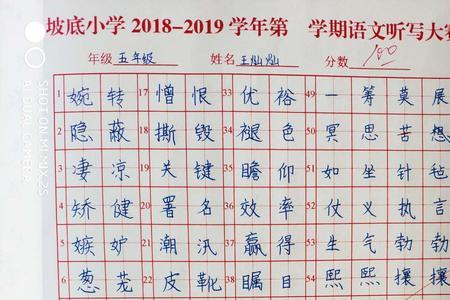 坡底小学 2018-2019 学年第 学期语文听写大赛
年级 五年级 姓名 王灿灿 分数 100
1 婉转 17 憎恨 33 优裕 49 一筹莫展
2 隐蔽 18 撕毁 34 褪色 50 冥思苦想
3 凄凉 19 关键 35 瞻仰 51 如坐针毡
4 矫健 20 署名 36 效率 52 仗义执言
5 嫉妒 21 潮汛 37 赢得 53 生气勃勃
6 葱茏 22 皮靴 38 瞩目 54 熙熙攘攘
SHOT ON MI MIX 2S
AI DUAL CAMERA